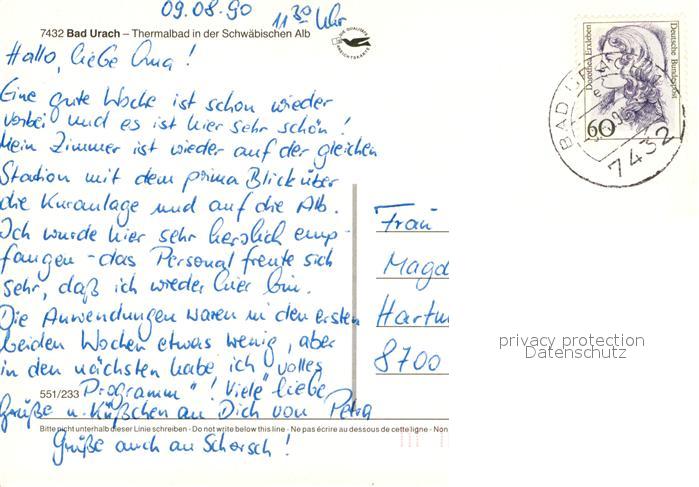 09.08.90 11 30 Uhr
7432 Bad Urach – Thermalbad in der Schwäbischen Alb
Hallo, liebe Oma!
Eine gute Woche ist schon wieder
vorbei und es ist hier sehr schön!
Mein Zimmer ist wieder auf der gleichen
Station mit dem prima Blick über
die Kuranlage und auf die Alb.
Ich wurde hier sehr herzlich emp-
fangen - das Personal freute sich
sehr, daß ich wieder hier bin.
Die Anwendungen waren in den ersten
beiden Wochen etwas wenig, aber
in den nächsten habe ich "volles
Programm"! Viele liebe
Grüße u. Küßchen an Dich von Petra
Grüße auch an Schorsch!
551/233
Bitte nicht unterhalb dieser Linie schreiben - Do not write below this line - Ne pas écrire au dessous de cette ligne - Non
Frau
Magd
Hartm
8700
Dorothea Erxleben
Deutsche Bundespost
60
BAD
7432
privacy protection
Datenschutz